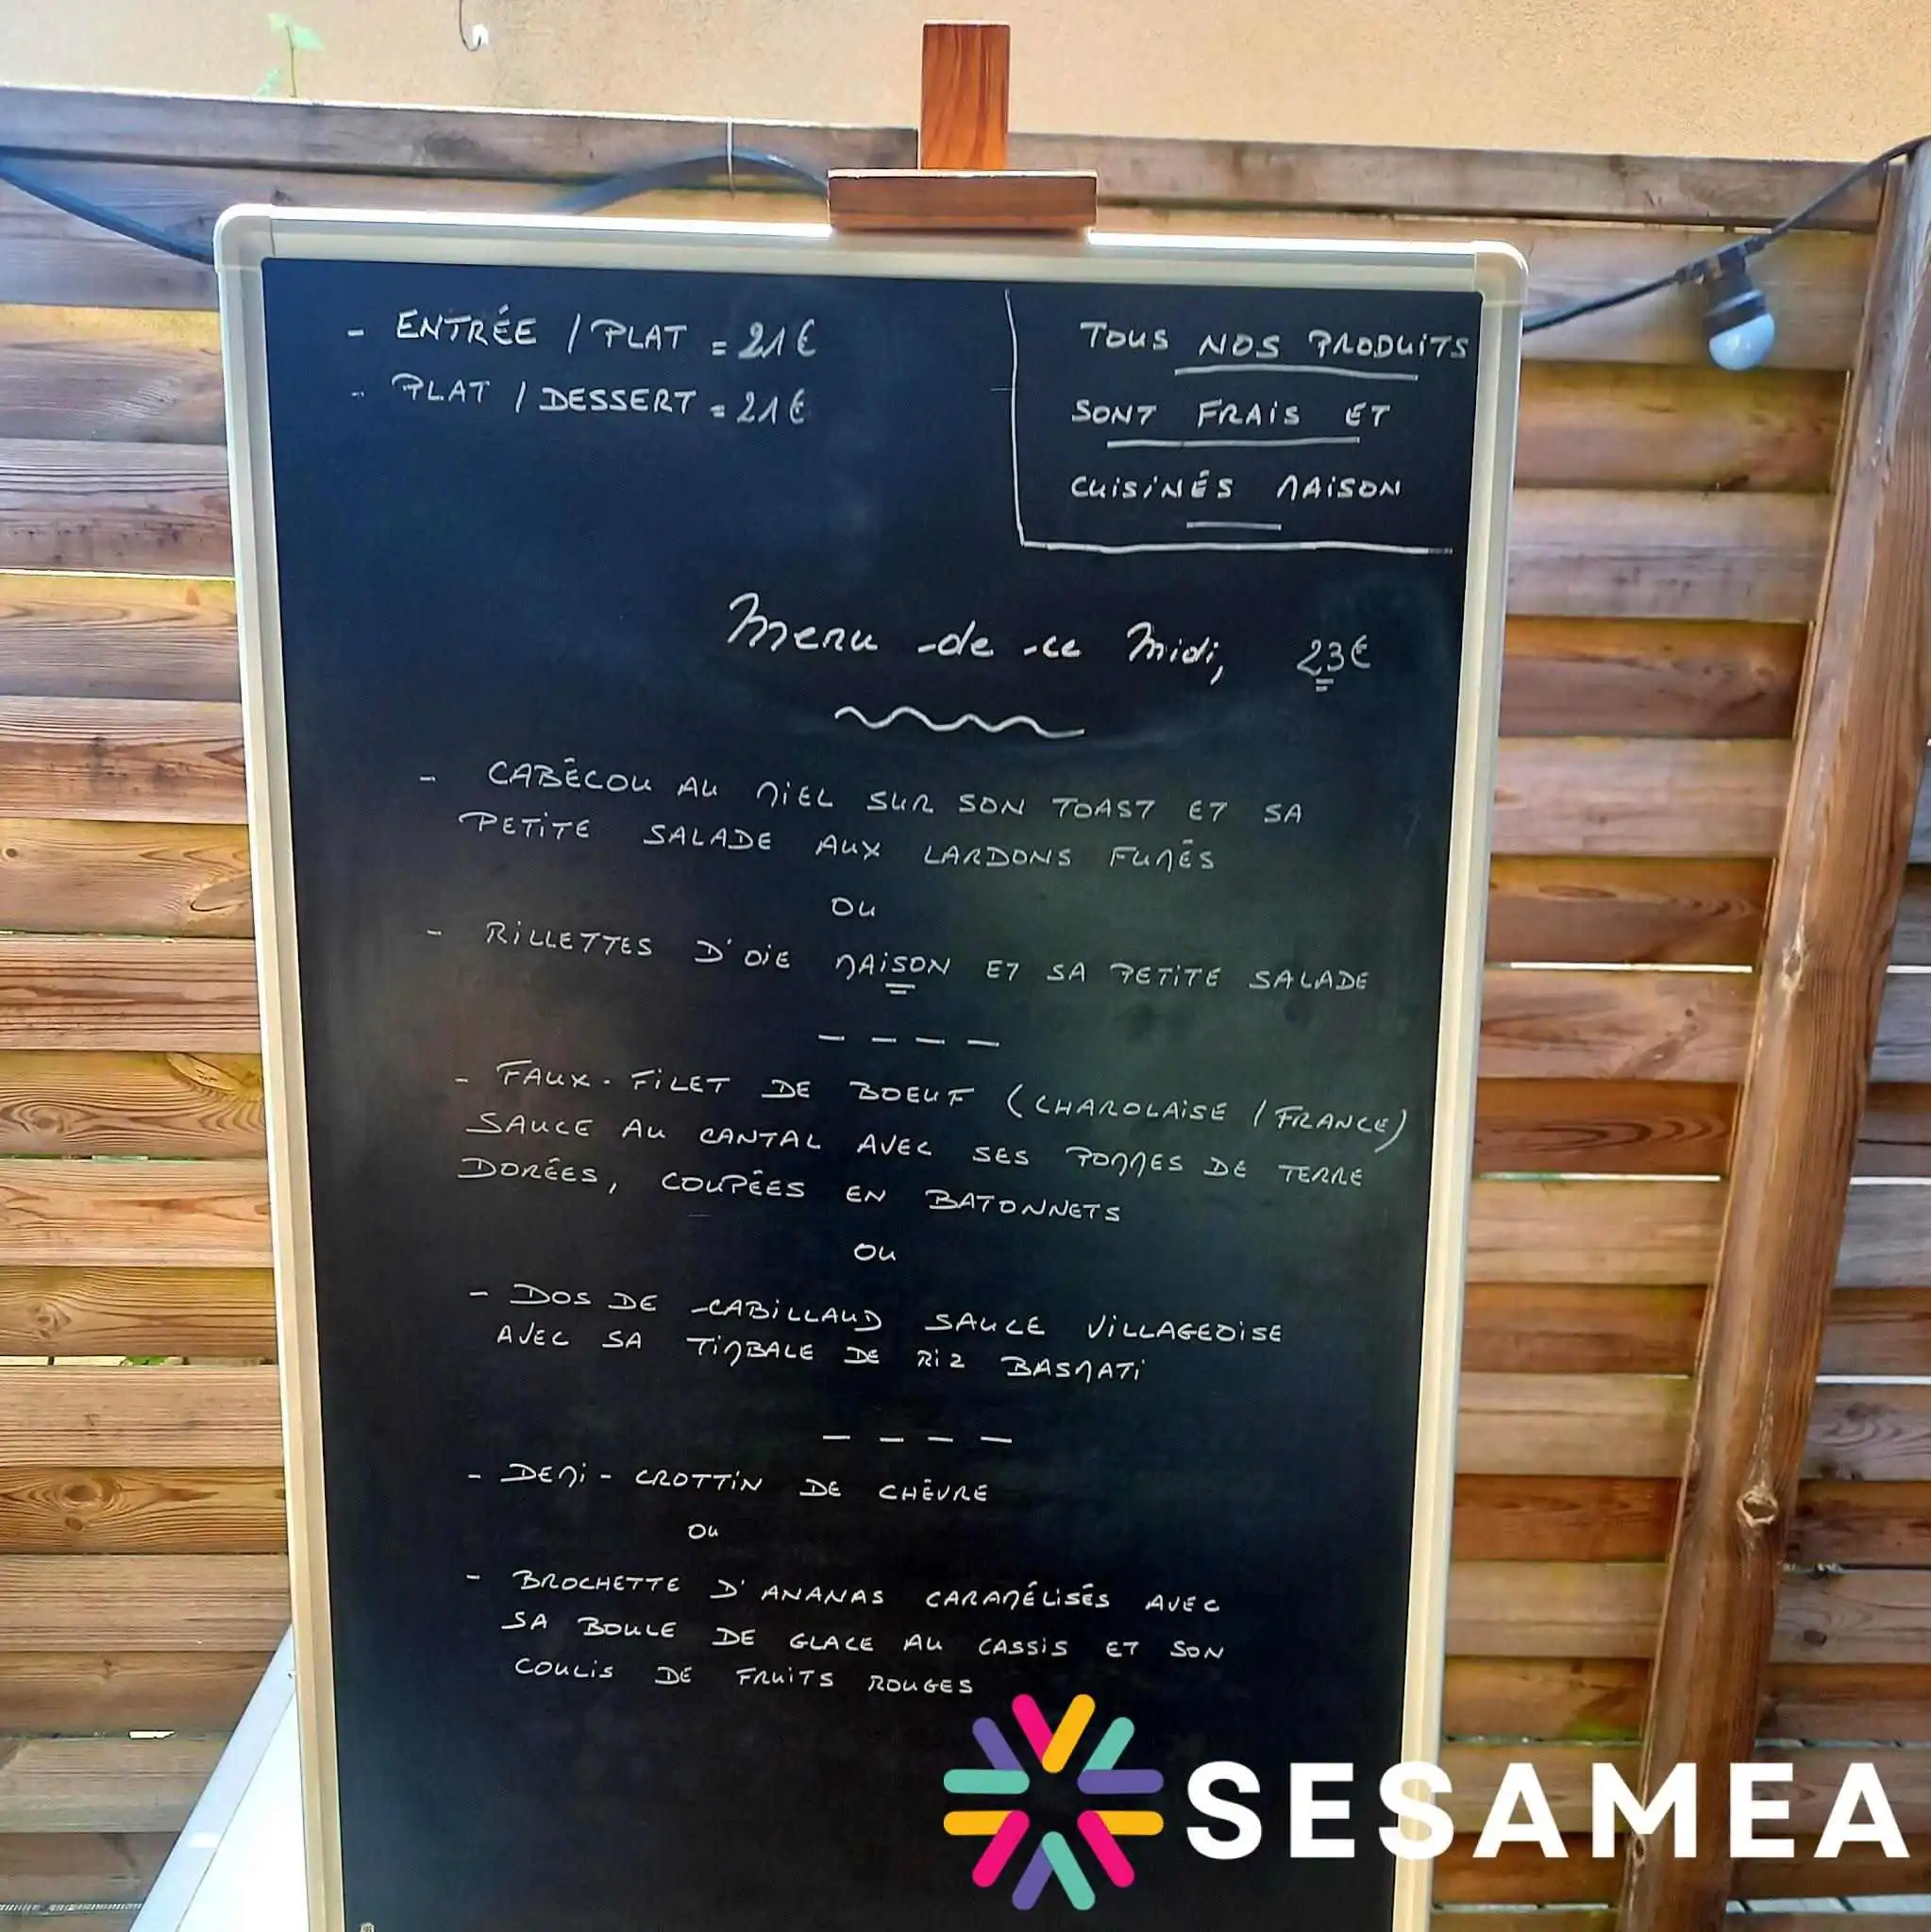 - ENTRÉE / PLAT = 21€
- PLAT / DESSERT = 21€
TOUS NOS PRODUITS
SONT FRAIS ET
CUISINÉS MAISON
Menu de ce Midi, 23€
- CABÉCOU AU MIEL SUR SON TOAST ET SA
PETITE SALADE AUX LARDONS FUMÉS
OU
- RILLETTES D'OIE MAISON ET SA PETITE SALADE
- FAUX-FILET DE BOEUF (CHAROLAISE / FRANCE)
SAUCE AU CANTAL AVEC SES POMMES DE TERRE
DORÉES, COUPÉES EN BATONNETS
OU
- DOS DE CABILLAUD SAUCE VILLAGEOISE
AVEC SA TIMBALE DE RIZ BASMATI
- DEMI-CROTTIN DE CHÈVRE
OU
- BROCHETTE D'ANANAS CARAMÉLISÉS AVEC
SA BOULE DE GLACE AU CASSIS ET SON
COULIS DE FRUITS ROUGES
SESAMEA